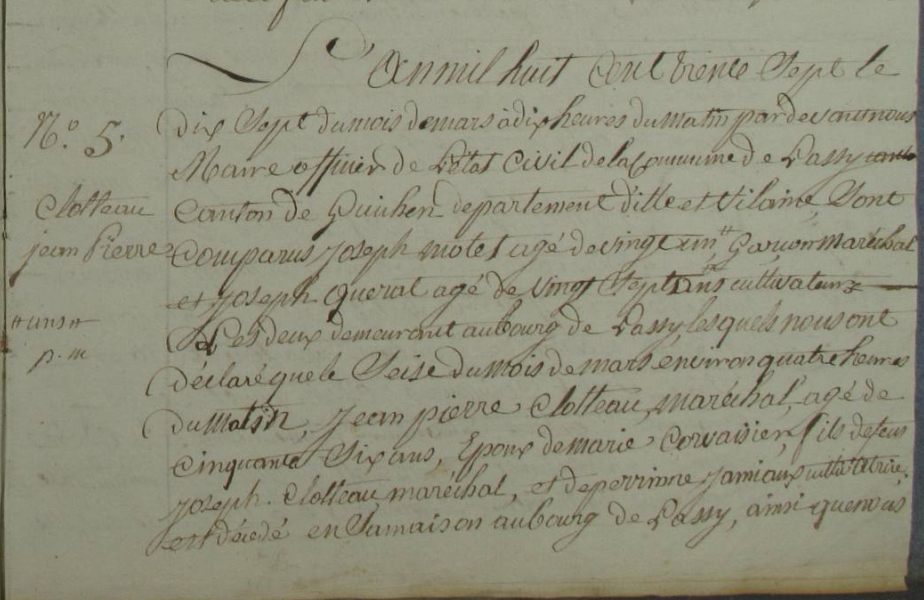 L'an mil huit Cent trente Sept le
N.o 5.
dix Sept du mois de mars à dix heures du matin par devant nous
Maire officier de L'état Civil de la Commune de Lassy
Clolteau
jean Pierre
Canton de Guichen departement d'ille et Vilaine, Sont
Comparus Joseph motel agé de vingt un Garçon maréchal
et Joseph queral agé de vingt Sept ans cultivateur
"ans"
p. m
Les deux demeurant au bourg de Lassy lesquels nous ont
déclaré que le Seise du mois de mars environ quatre heures
du matin, Jean pierre Clolteau, maréchal, agé de
Cinquante Six ans, Epoux de marie Corvaisier, fils de feus
Joseph Clolteau, maréchal, et de perrinne Jamiaux cultivatrice,
est décédé en Sa maison au bourg de Lassy, ainsi que nous